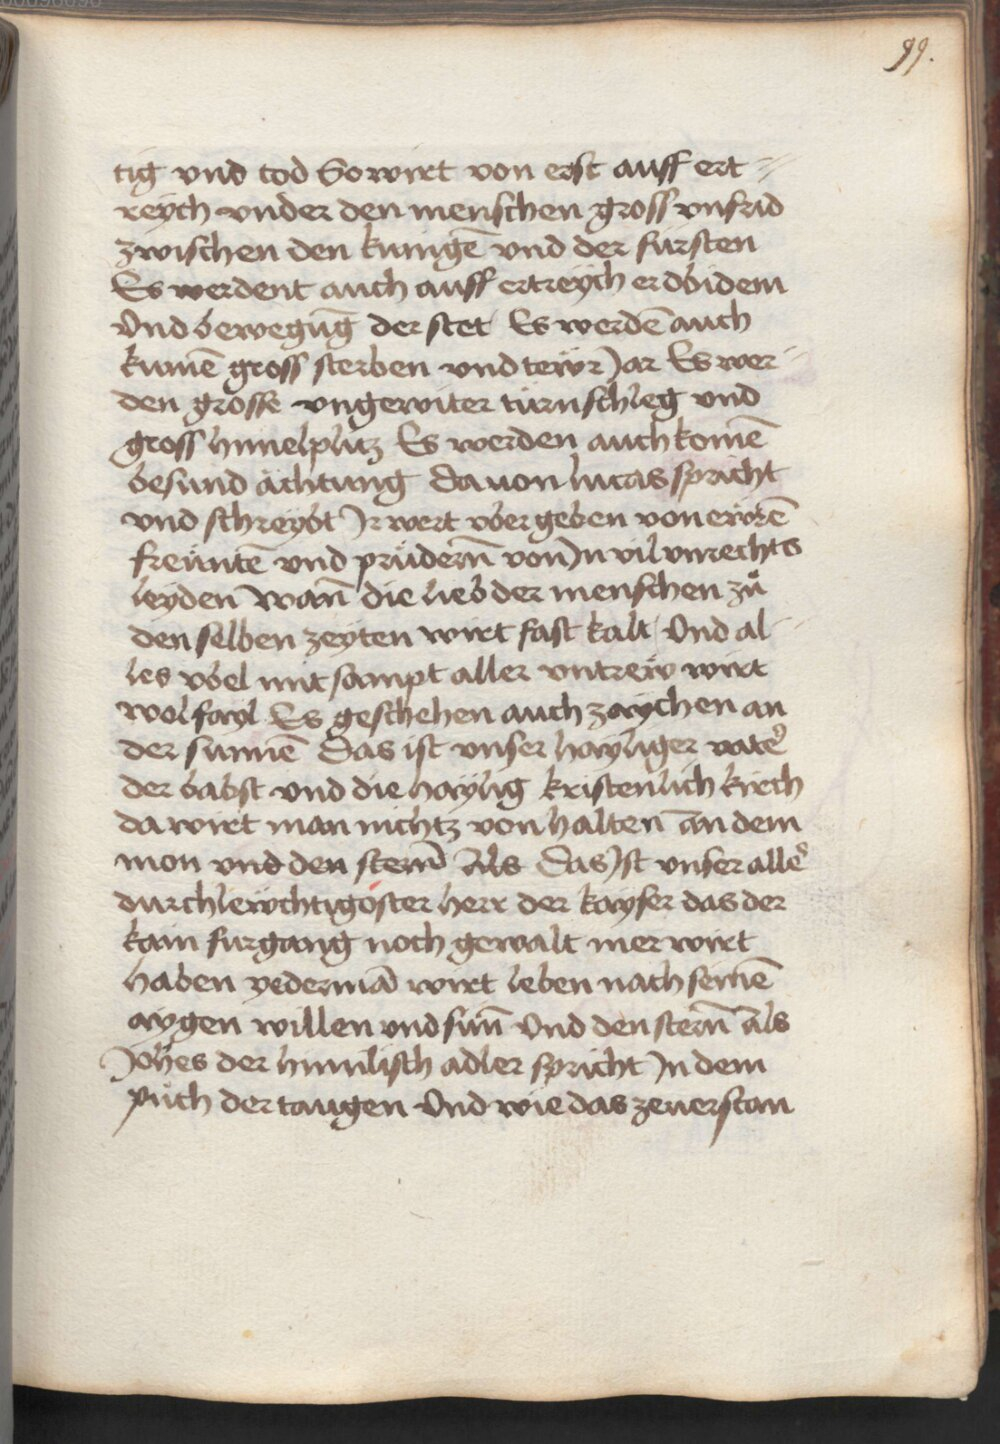 99.
tig vnd tod So wirt von erst auff ert⸗
reych vnder den menschen gross vnfrid
zwischen den kunigē vnd der fürsten
Es werdent auch auff ertreych erdbidem
Vnd bewegūg der stet Es werdē auch
kumē gross sterben vnd tewr Jar Es wer⸗
den grosse vngewiter turnschleg vnd
gross himelplitz Es werden auch komē
besund ächtung Dauon lucas spricht
vnd schreybt Jr wert vbergeben von ewrē
freüntē vnd prüdern̄ von Jn vil vnrechts
leyden Wan̄ die lieb der menschen zů
den selben zeyten wirt fast kalt Vnd al⸗
les vbel mit sampt aller vntrew wirt
wolfayl Es geschehen auch zaychen an
der sunnē Das ist vnser hayliger vatē
der babst vnd die haylig kristenlich kirch
da wirt man nichtz von halten an dem
mon vnd den stern̄ Als Das Jst vnser allē
durchlewchtigöster herr der kayser das der
kain furgang noch gewalt mer wirt
haben yedermā wirt leben nach seinē
aygen willen vnd sin̄ Vnd den stern̄ als
Johes der himlisch adler spricht Jn dem
půch der taugen Vnd wie das zeuerstan